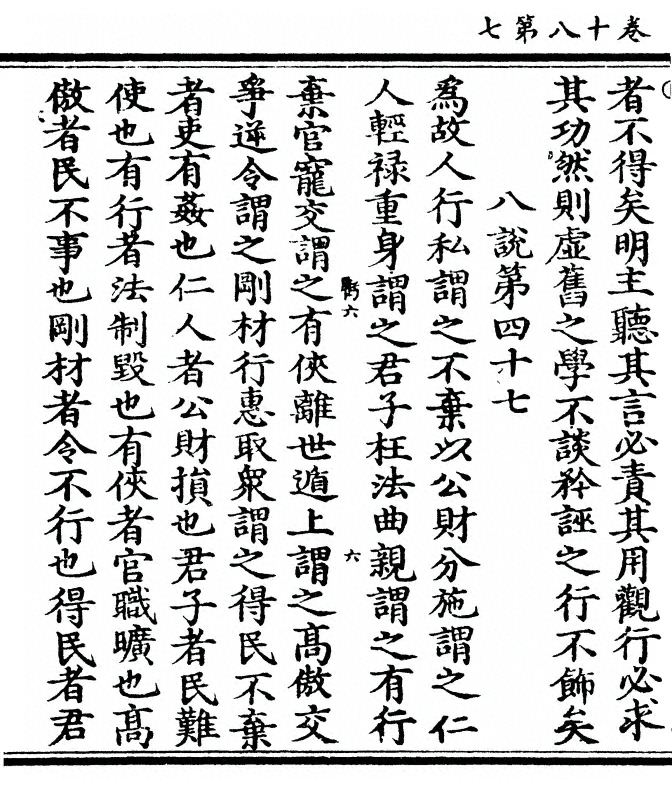 卷十八第七
者不得矣明主聽其言必責其用觀行必求
其功然則虛舊之學不談矜誣之行不飾矣
八說第四十七
爲故人行私謂之不棄以公財分施謂之仁
人輕祿重身謂之君子枉法曲親謂之有行
六
六
棄官寵交謂之有俠離世遁上謂之髙傲交
爭逆令謂之剛材行惠取衆謂之得民不棄
者吏有姦也仁人者公財損也君子者民難
使也有行者法制毀也有俠者官職曠也髙
傲者民不事也剛材者令不行也得民者君